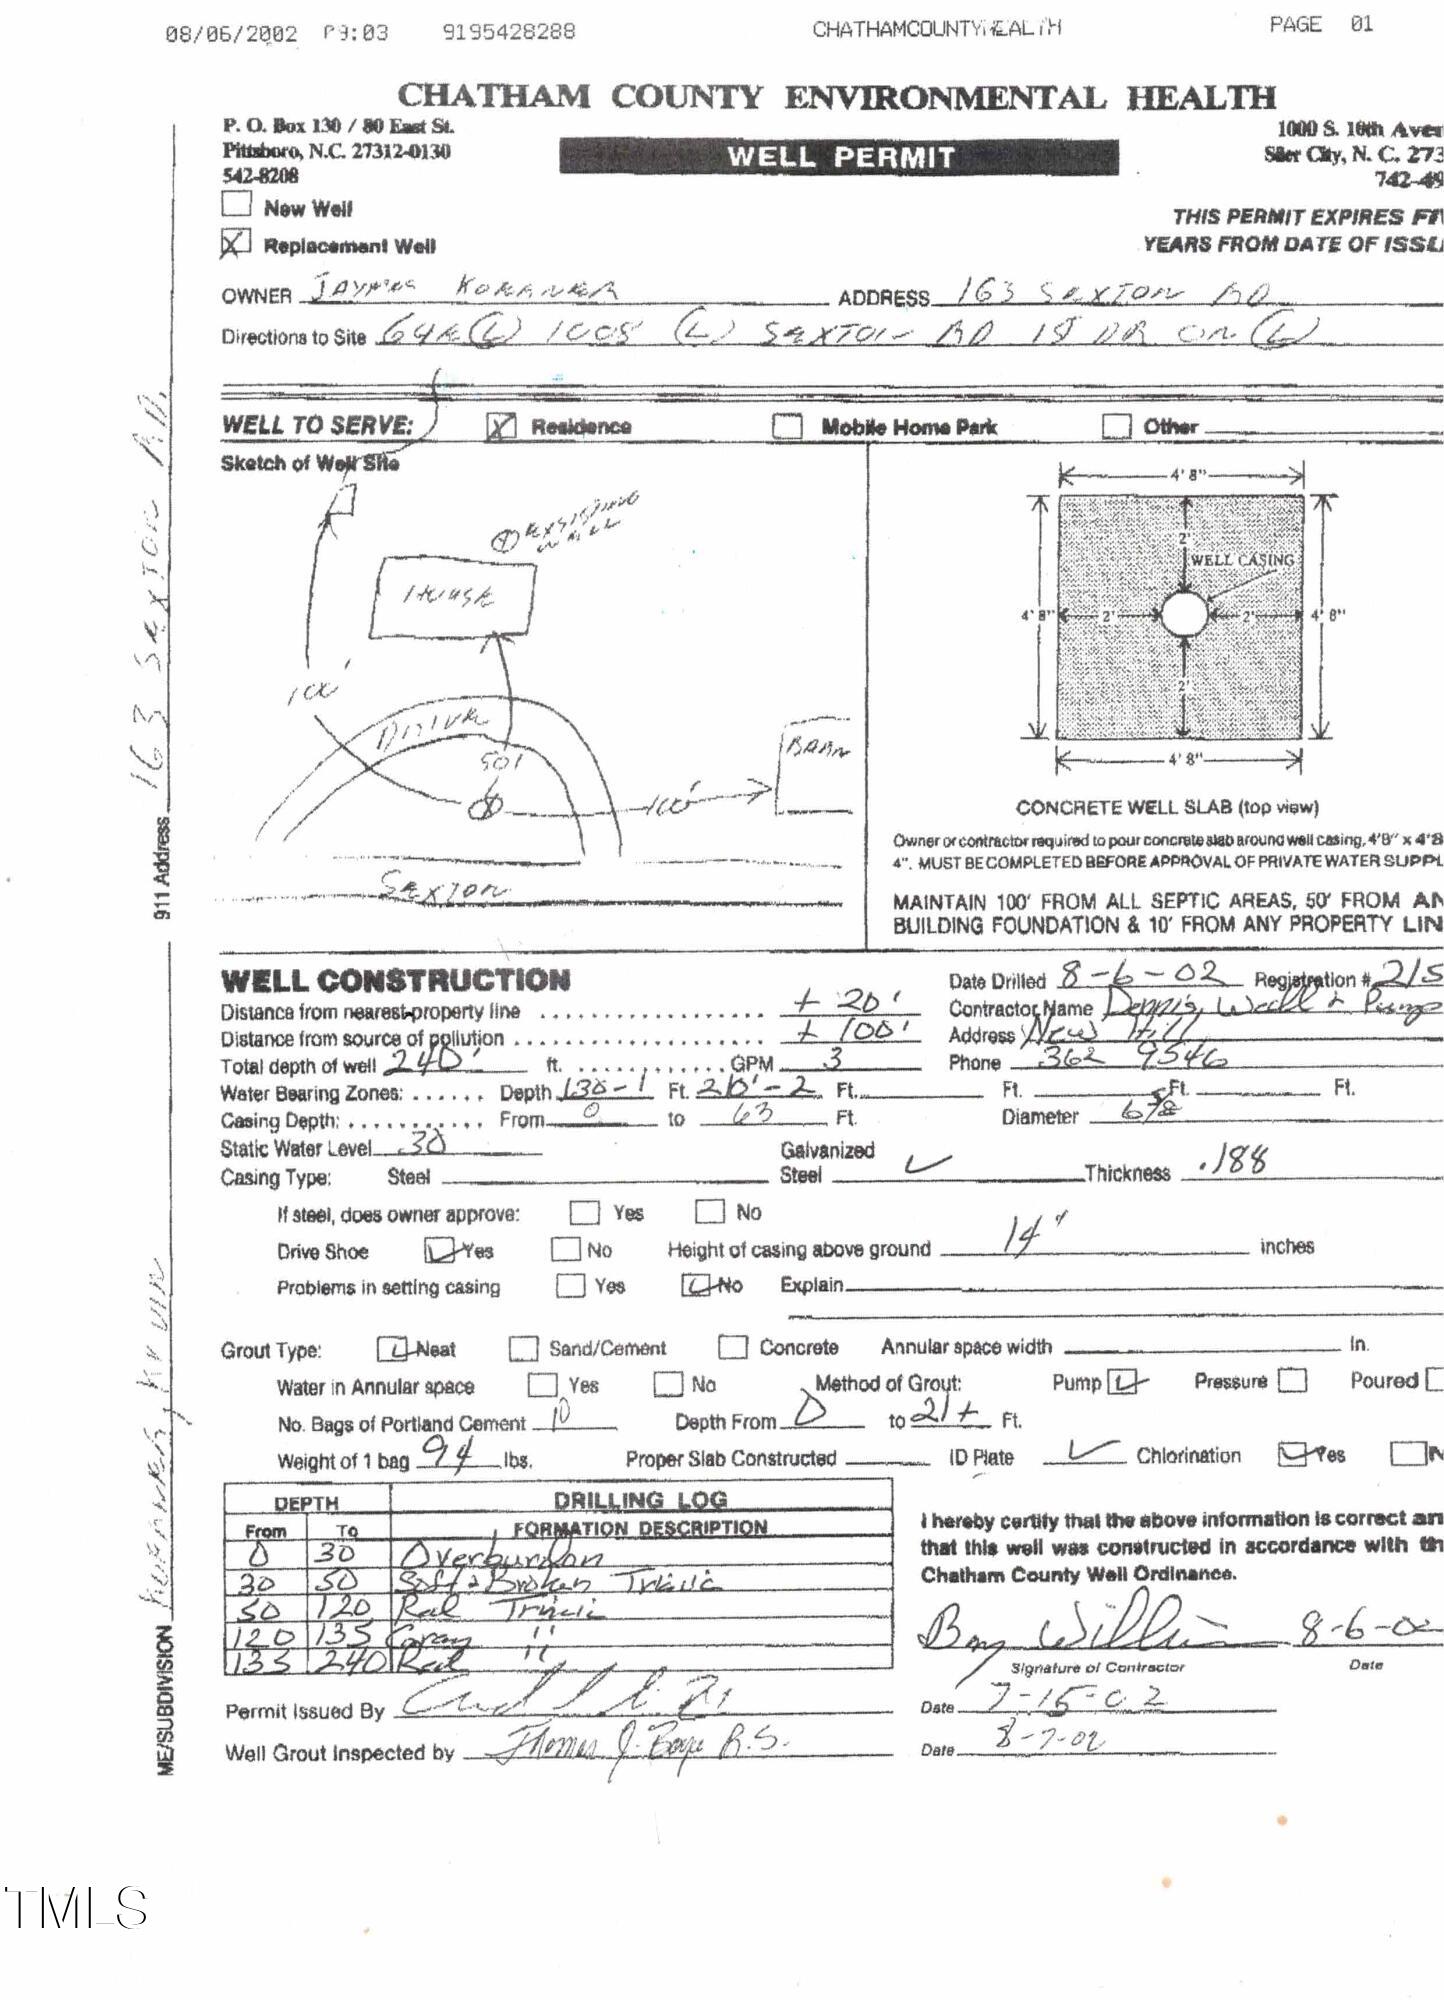 08/06/2002 09:03 9195428288 CHATHAMCOUNTYHEALTH PAGE 01
CHATHAM COUNTY ENVIRONMENTAL HEALTH
P. O. Box 130 / 80 East St.
Pittsboro, N.C. 27312-0130
542-8208
WELL PERMIT
1000 S. 10th Aven
Siler City, N. C. 273
742-49
New Well
Replacement Well
THIS PERMIT EXPIRES FIV
YEARS FROM DATE OF ISSU
OWNER ADDRESS 163 SEXTON RD
Directions to Site 64E (L) 1008 (L) SEXTON RD 1st DR ON (L)
WELL TO SERVE: Residence Mobile Home Park Other
Sketch of Well Site
EXISTING
WELL
HOUSE
100'
DRIVE
50'
100'
BARN
SEXTON
4' 8"
2'
WELL CASING
4' 8" 2' 2' 4' 8"
2'
4' 8"
CONCRETE WELL SLAB (top view)
Owner or contractor required to pour concrete slab around well casing, 4'8" x 4'8
4". MUST BE COMPLETED BEFORE APPROVAL OF PRIVATE WATER SUPPL
MAINTAIN 100' FROM ALL SEPTIC AREAS, 50' FROM AN
BUILDING FOUNDATION & 10' FROM ANY PROPERTY LIN
911 Address 163 SEXTON RD.
ME/SUBDIVISION
WELL CONSTRUCTION
Date Drilled 8-6-02 Registration # 215
Distance from nearest property line + 20' Contractor Name Dennis Well & Pump
Distance from source of pollution + 100' Address New Hill
Total depth of well 240' ft. GPM 3 Phone 362 9546
Water Bearing Zones: Depth 130-1 Ft. 210'-2 Ft. Ft. Ft. Ft.
Casing Depth: From 0 to 63 Ft. Diameter 6 5/8
Static Water Level 30
Casing Type: Steel Galvanized Steel Thickness .188
If steel, does owner approve: Yes No
Drive Shoe Yes No Height of casing above ground 14" inches
Problems in setting casing Yes No Explain
Grout Type: Neat Sand/Cement Concrete Annular space width In.
Water in Annular space Yes No Method of Grout: Pump Pressure Poured
No. Bags of Portland Cement 10 Depth From 0 to 21+ Ft.
Weight of 1 bag 94 lbs. Proper Slab Constructed ID Plate Chlorination Yes N
DEPTH DRILLING LOG
From To FORMATION DESCRIPTION
0 30 Overburdon
30 50 Soft & Broken Trissic
50 120 Red Trissic
120 135 Gray "
135 240 Red "
I hereby certify that the above information is correct an
that this well was constructed in accordance with th
Chatham County Well Ordinance.
8-6-02
Signature of Contractor Date
Permit Issued By Date 7-15-02
Well Grout Inspected by Thomas J. Boyce R.S. Date 8-7-02
TMLS